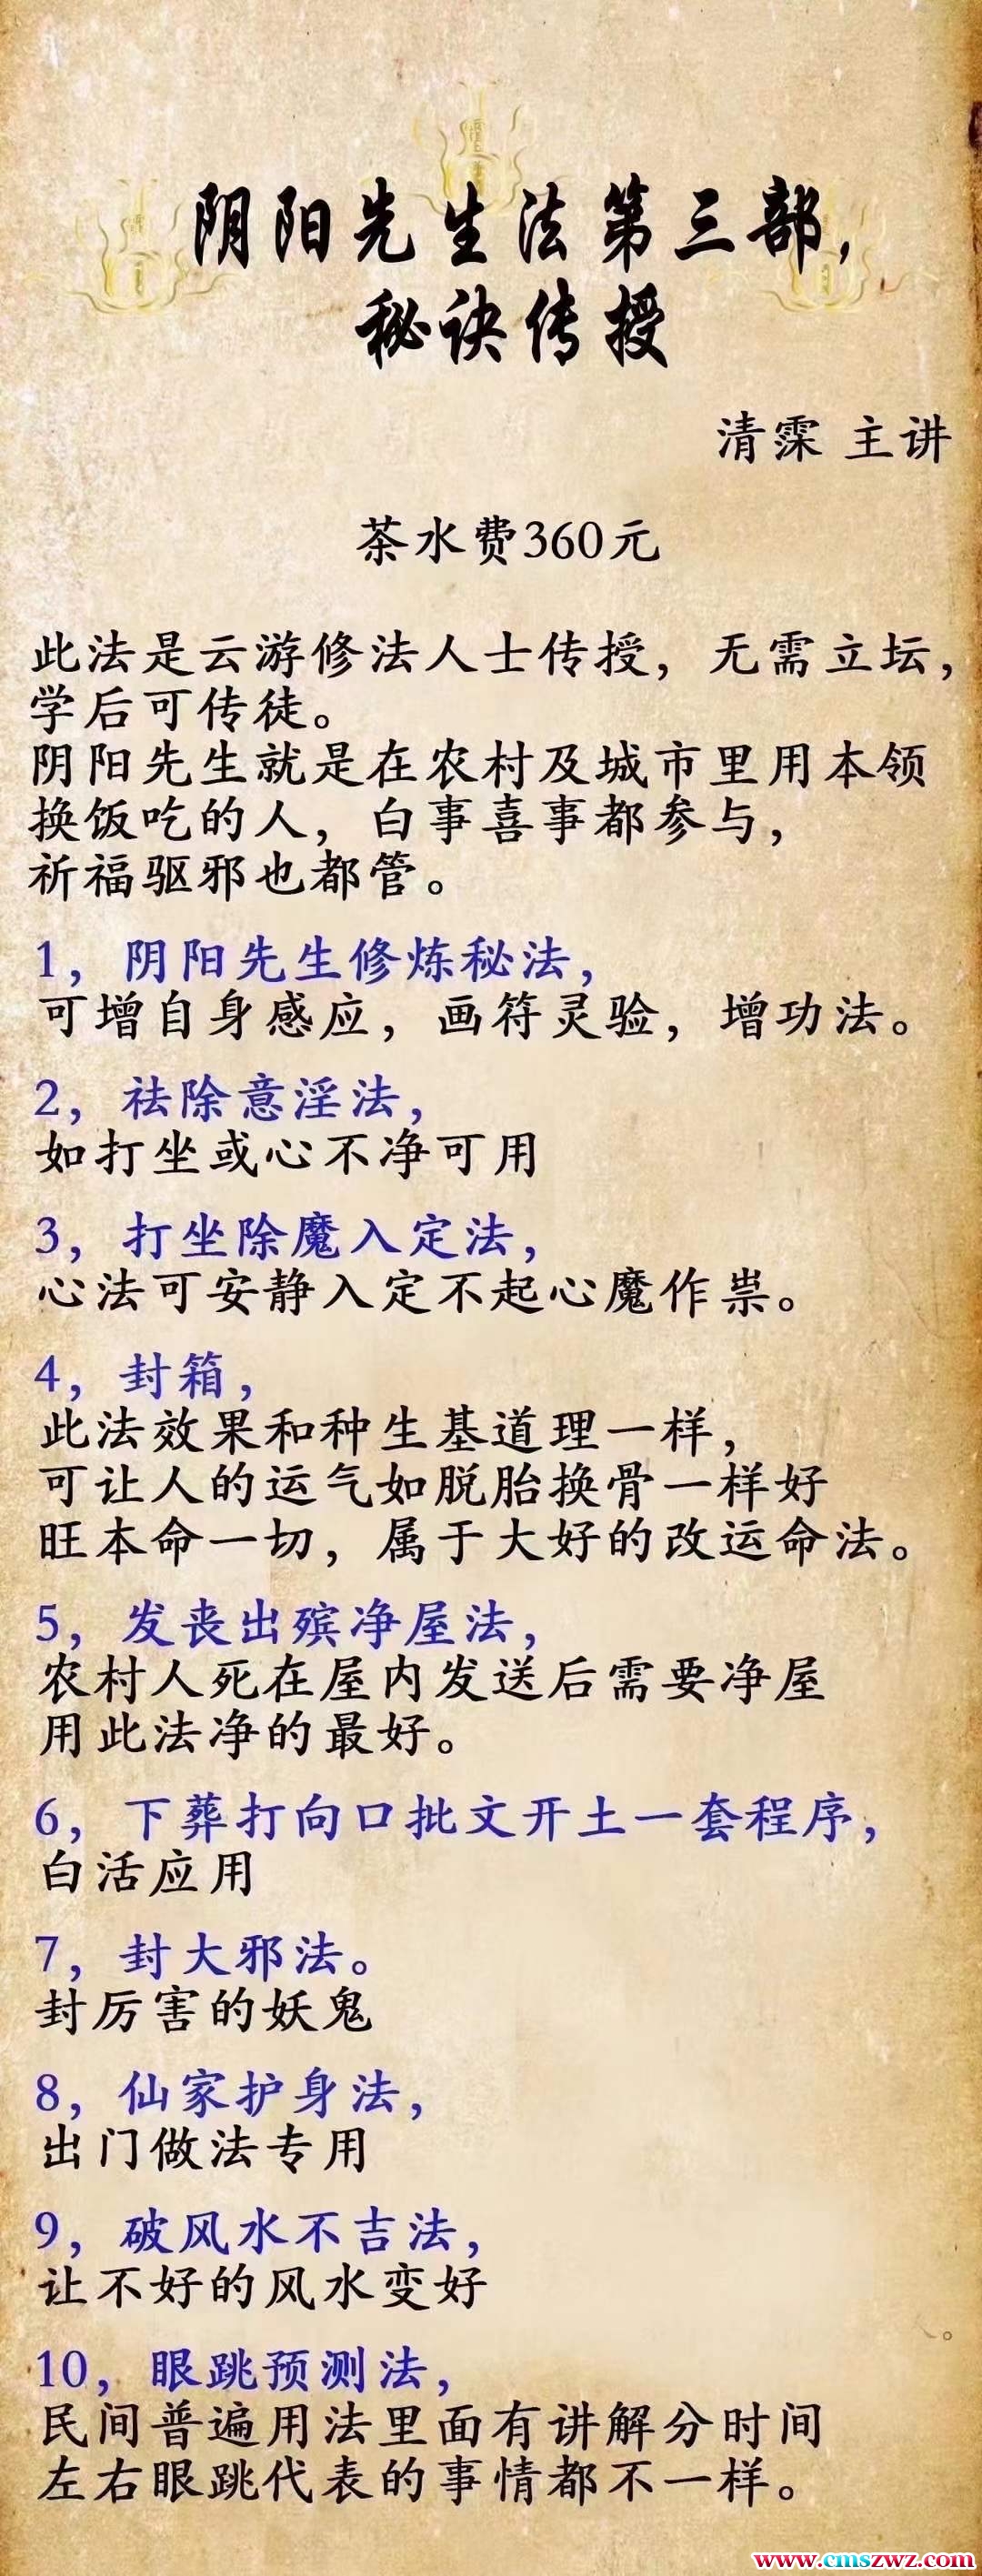 阴阳先生法第三部，
秘诀传授
清霂 主讲
茶水费360元
此法是云游修法人士传授，无需立坛，
学后可传徒。
阴阳先生就是在农村及城市里用本领
换饭吃的人，白事喜事都参与，
祈福驱邪也都管。
1，阴阳先生修炼秘法，
可增自身感应，画符灵验，增功法。
2，祛除意淫法，
如打坐或心不净可用
3，打坐除魔入定法，
心法可安静入定不起心魔作祟。
4，封箱，
此法效果和种生基道理一样，
可让人的运气如脱胎换骨一样好
旺本命一切，属于大好的改运命法。
5，发丧出殡净屋法，
农村人死在屋内发送后需要净屋
用此法净的最好。
6，下葬打向口批文开土一套程序，
白活应用
7，封大邪法。
封厉害的妖鬼
8，仙家护身法，
出门做法专用
9，破风水不吉法，
让不好的风水变好
10，眼跳预测法，
民间普遍用法里面有讲解分时间
左右眼跳代表的事情都不一样。
www.cmszwz.com